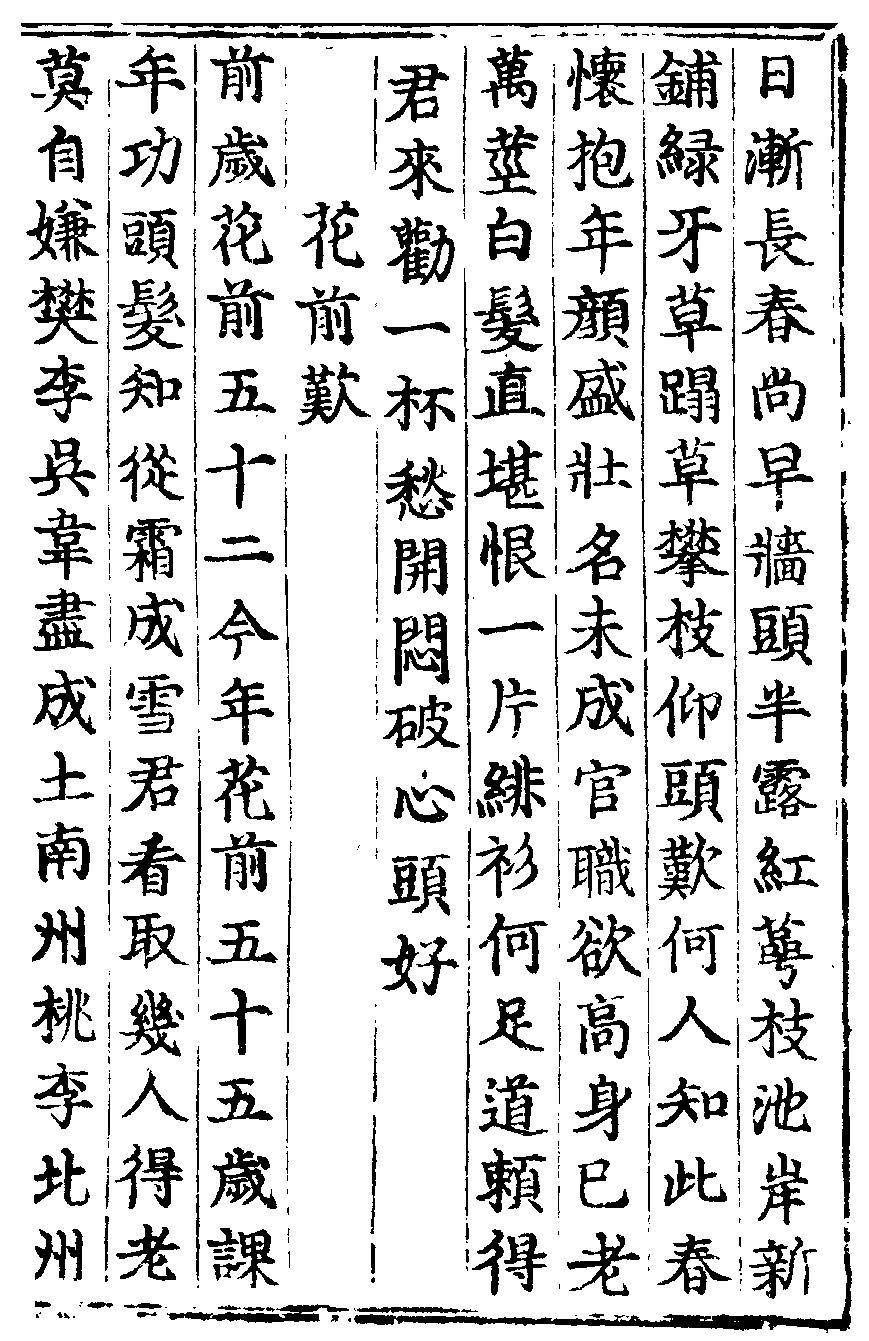 日漸長春尚早牆頭半露紅萼枝池岸新
鋪綠牙草蹋草攀枝仰頭歎何人知此春
懷抱年顏盛壯名未成官職欲高身已老
萬莖白髮直堪恨一片緋衫何足道賴得
君來勸一杯愁開悶破心頭好
花前歎
前歲花前五十二今年花前五十五歲課
年功頭髮知從霜成雪君看取幾人得老
莫自嫌樊李吳韋盡成土南州桃李北州